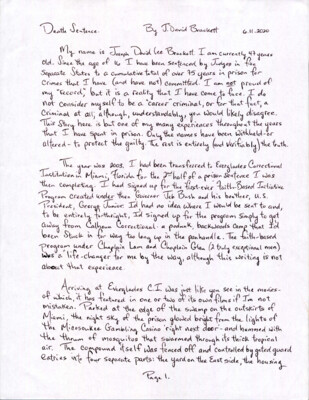 Death Sentence. By J. David Brackett 6.11.2020
My name is Joseph David Lee Brackett. I am currently 47 years
old. Since the age of 16 I have been sentenced by Judges in five
Separate States to a cumulative total of over 75 years in prison for
Crimes that I have (and have not) committed. I am not proud of
my "record," but it is a reality that I have come to face. I do
not consider myself to be a 'career' criminal, or for that fact, a
Criminal at all; although, understandably, you would likely disagree.
This Story here is but one of my many experiences throughout the years
that I have spent in prison. Only the names have been withheld-or
altered-to protect the guilty. The rest is entirely (and veritably) the truth.
The year was 2003. I had been transferred to Everglades Correctional
Institution in Miami, Florida for the 2nd half of a prison sentence I was
then completing. I had signed up for the first-ever Faith-Based Initiative
Program created under then Governor Jeb Bush and his brother, U.S.
President, George Junior. I'd had no idea where I would be sent to and,
to be entirely forthright, I'd signed up for the program simply to get
away from Calhoun Correctional: a podunk, backwoods camp that I'd
been Stuck in for way too long up in the panhandle. The faith-based
program under Chaplain Lam and Chaplain Glen (2 truly exceptional men)
was a life-changer for me by the way, although this writing is not
about that experience.
Arriving at Everglades C.I. was just like you see in the movies-
of which, it has featured in one or two of its own films if I'm not
mistaken. Parked at the edge of the swamp on the outskirts of
Miami, the night sky of the prison glowed bright from the lights of
the Miccosukee Gambling Casino right next door-and hummed with
the thrum of mosquitos that swarmed through its thick tropical
air. The compound itself was fenced off and controlled by gated guard
entries into four separate parts: the yard on the East side, the housing
Page 1.